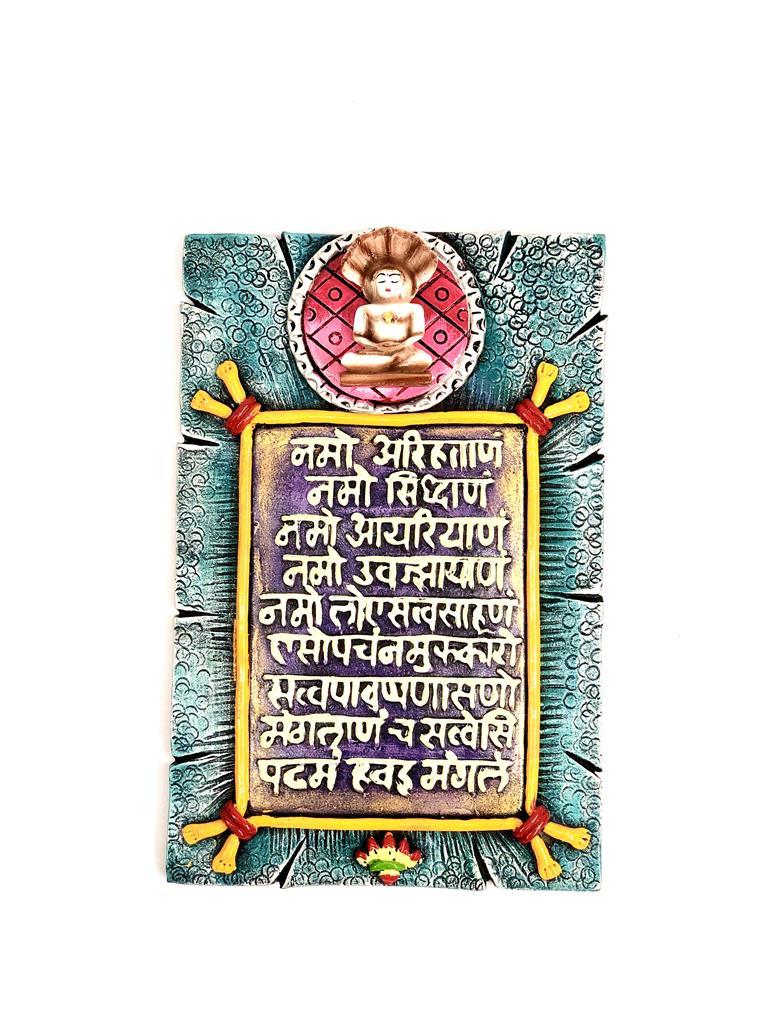 नमो अरिहताणं
नमो सिध्दाणं
नमो आयरियाणं
नमो उवज्झायाणं
नमो लोएसव्वसाहूणं
एसोपचंनमुक्कारो
सव्वपावप्पणासणो
मंगलाणं च सव्वेसि
पढमं हवइ मंगलं